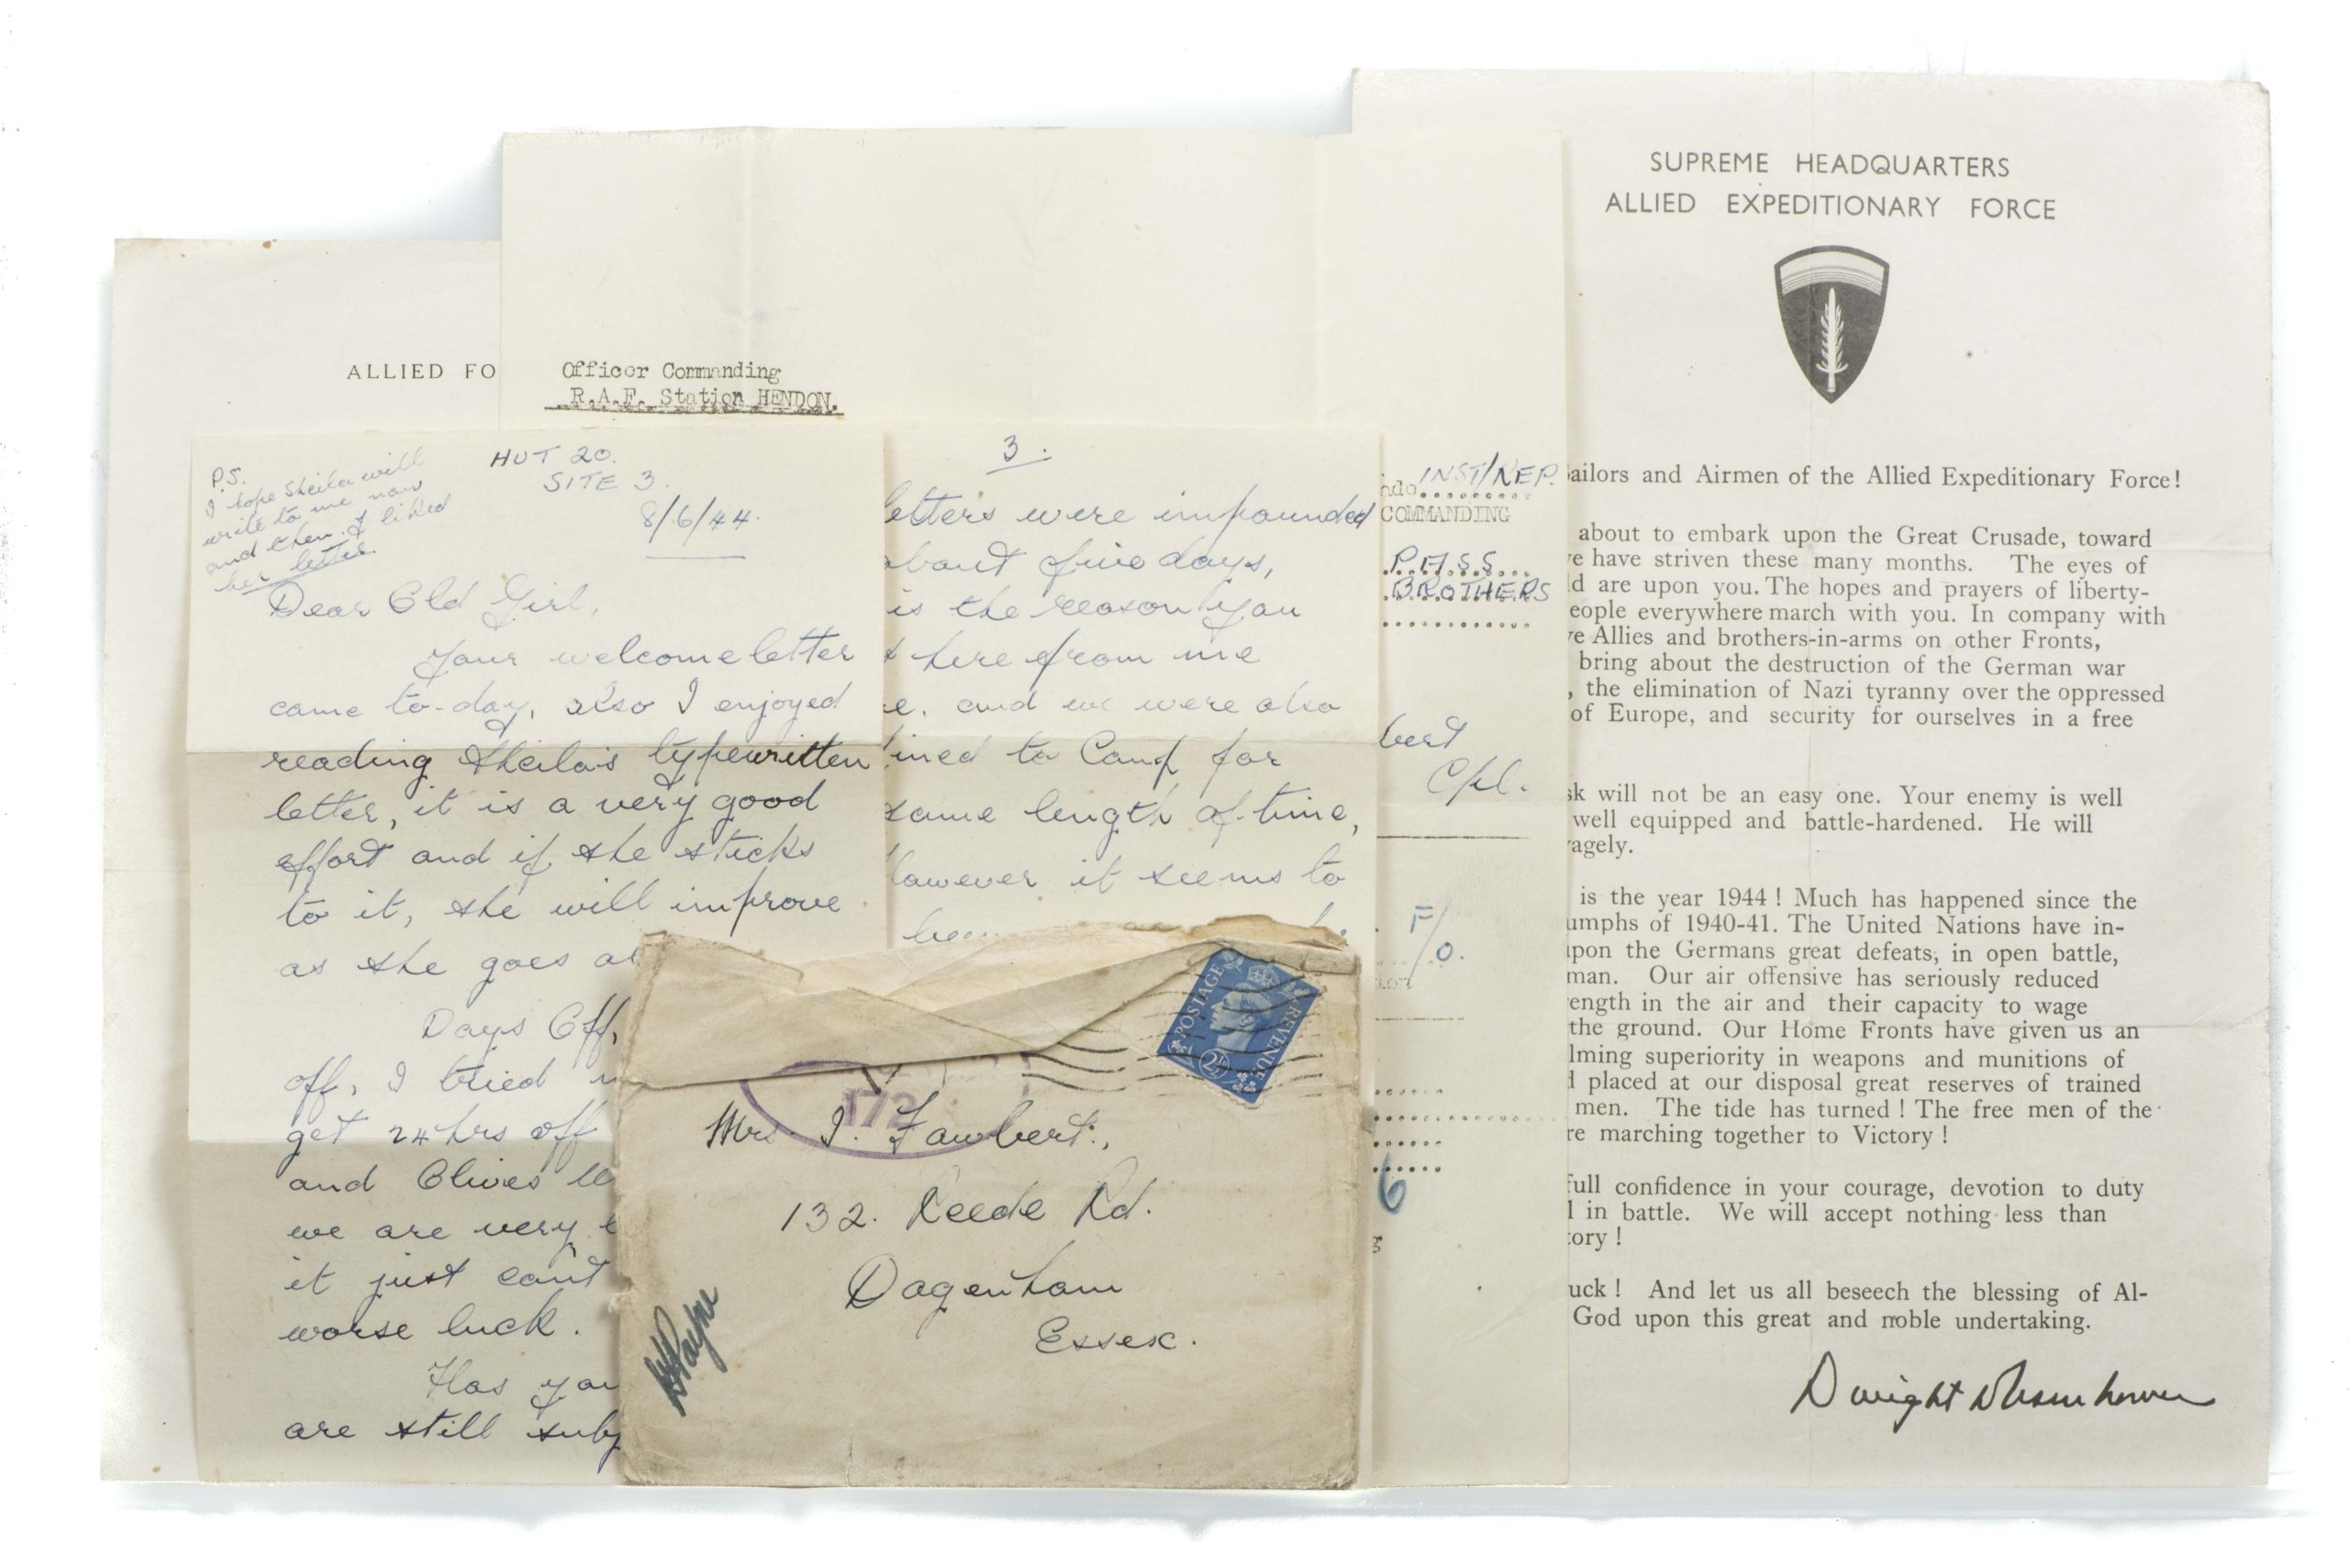 ALLIED FO
Officer Commanding
R.A.F. Station HENDON.
P.S.
I hope Sheila will
write to me now
and then. I liked
her letter.
HUT 20.
SITE 3.
8/6/44.
Dear Old Girl,
Your welcome letter
came to-day, also I enjoyed
reading Sheila's typewritten
letter, it is a very good
effort and if she sticks
to it, she will improve
as she goes
Days Off,
off, I tried
get 24 hrs off
and Olives
we are very
it just can't
worse luck.
Has
are still
3.
etters were impounded
about five days,
is the reason you
here from me
e. and we were also
ined to Camp for
same length of time,
However it seems to
INST/REP.
COMMANDING
PASS
BROTHERS
bert
Cpl.
F/O.
6
POSTAGE
REVENUE
2½
172
Mrs I. Fawbert.,
132. Reede Rd.
Dagenham
Essex.
Payne
SUPREME HEADQUARTERS
ALLIED EXPEDITIONARY FORCE
ailors and Airmen of the Allied Expeditionary Force!
about to embark upon the Great Crusade, toward
e have striven these many months. The eyes of
d are upon you. The hopes and prayers of liberty-
eople everywhere march with you. In company with
e Allies and brothers-in-arms on other Fronts,
bring about the destruction of the German war
, the elimination of Nazi tyranny over the oppressed
of Europe, and security for ourselves in a free
sk will not be an easy one. Your enemy is well
well equipped and battle-hardened. He will
agely.
is the year 1944 ! Much has happened since the
umphs of 1940-41. The United Nations have in-
pon the Germans great defeats, in open battle,
man. Our air offensive has seriously reduced
ength in the air and their capacity to wage
the ground. Our Home Fronts have given us an
lming superiority in weapons and munitions of
d placed at our disposal great reserves of trained
men. The tide has turned ! The free men of the
re marching together to Victory !
full confidence in your courage, devotion to duty
l in battle. We will accept nothing less than
tory !
uck ! And let us all beseech the blessing of Al-
God upon this great and noble undertaking.
Dwight D Eisenhower